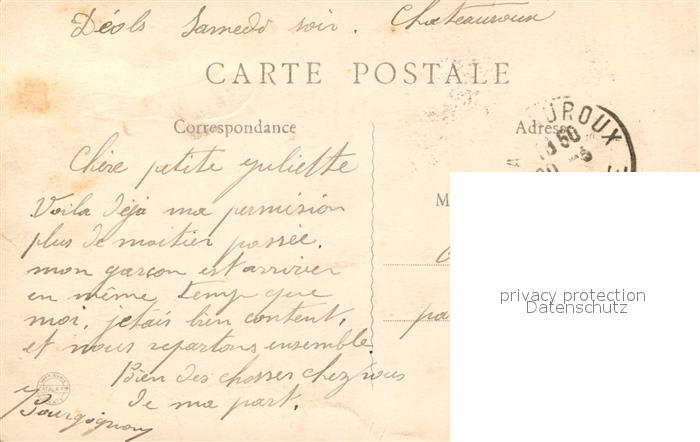 Déols Samedo soir. Chateauroux
CARTE POSTALE
Correspondance
Adresse
UROUX
Chère petite Juliette
Voila déjà ma permision
plus de moitier passée.
mon garçon est arriver
en même temp que
moi. jetais bien content.
et nous repartons ensemble
Bien des chosses chez vous
de ma part.
Bourgoignon
M
pa
privacy protection
Datenschutz